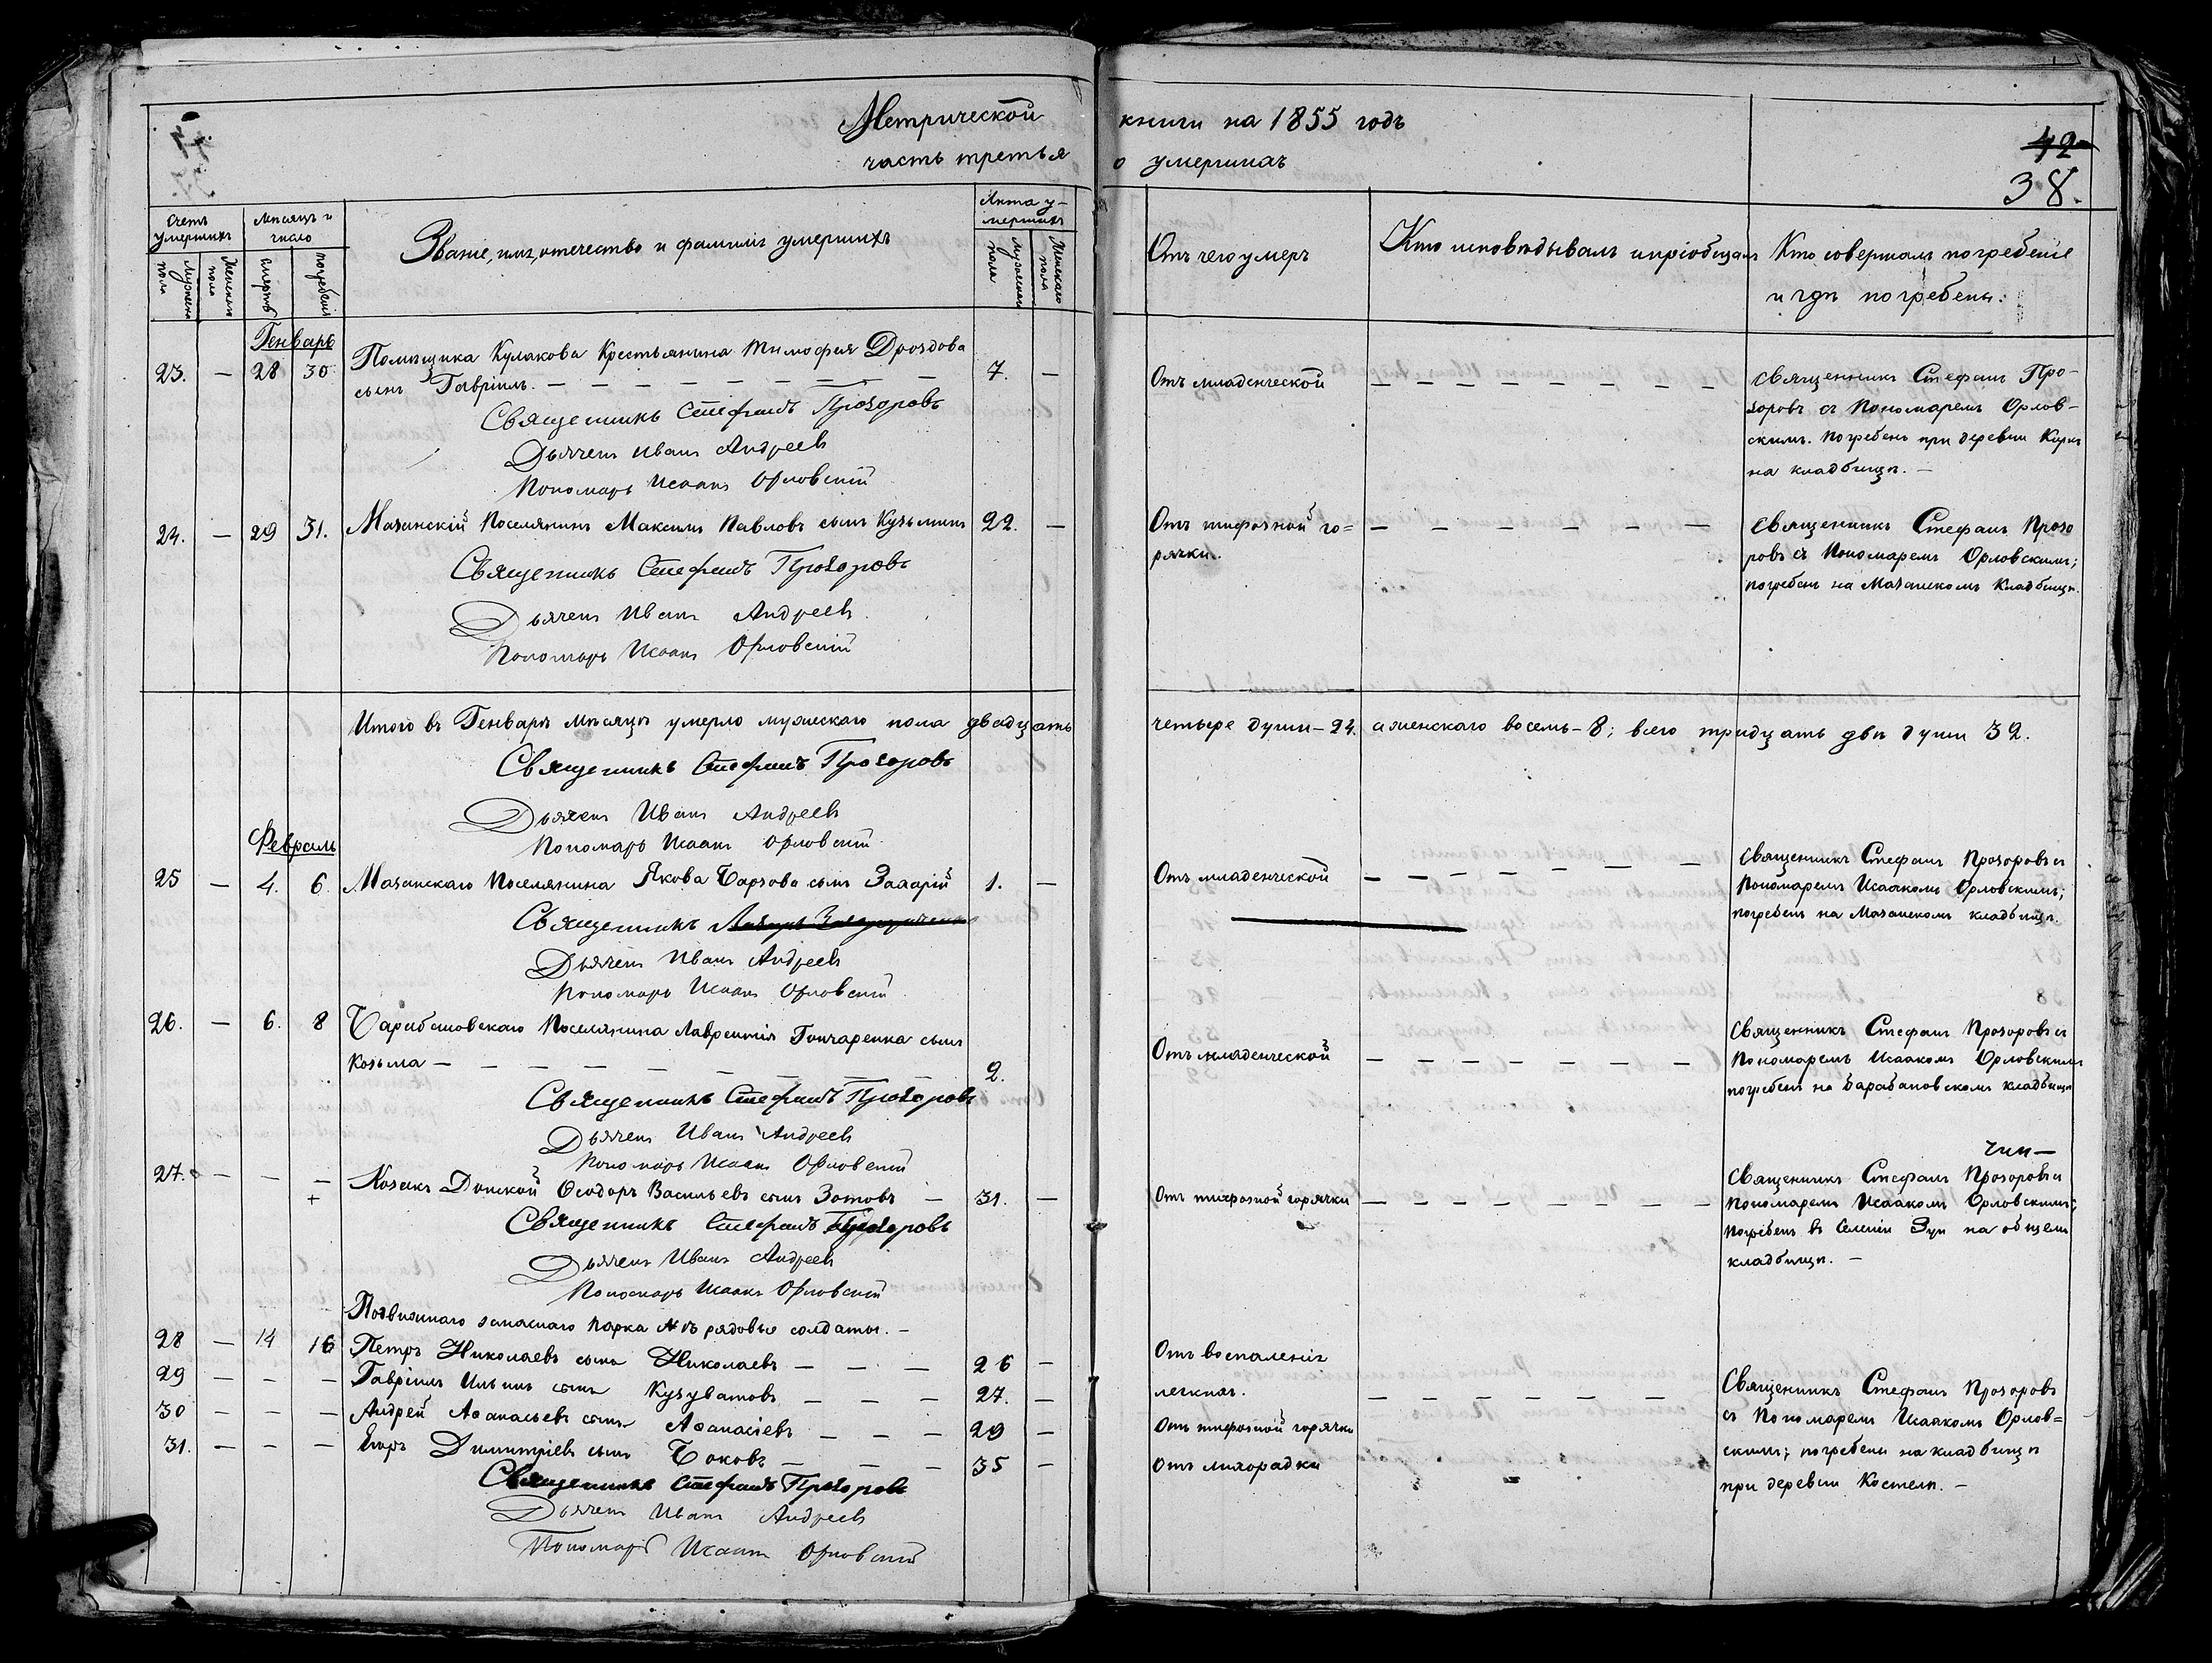 Метрической книги на 1855 годъ
часть третья о умершихъ
42
38.
Счетъ умершихъ
Мужеска пола
Женска пола
Мѣсяцъ и число
смерть
погребенія
Званіе, имя, отечество и фамилія умершихъ
Лѣта умершихъ
Мужескаго пола
Женскаго пола
Отъ чего умеръ
Кто исповѣдывалъ и пріобщалъ
Кто совершалъ погребеніе
и гдѣ погребены.
Генварь
23. — 28 30 Помѣщика Кулакова Крестьянина Тимофея Дроздова
сынъ Гавріилъ. — — — — — — — 7. —
Отъ младенческой — — — — — — — —
Священникъ Стефанъ Про-
зоровъ съ Пономаремъ Орлов-
скимъ. Погребенъ при деревни
на кладбищѣ. —
Священникъ Стефанъ Прозоровъ
Дьячекъ Иванъ Андреевъ
Пономарь Исаакъ Орловскій
24. — 29 31. Мазанскій Поселянинъ Максимъ Павловъ сынъ Кузьминъ 22. —
Отъ тифозной го=
рячки. — — — — — — —
Священникъ Стефанъ Прозо
ровъ съ Пономаремъ Орловскимъ;
погребенъ на Мазанскомъ Кладбищѣ.
Священникъ Стефанъ Прозоровъ
Дьячекъ Иванъ Андреевъ
Пономарь Исаакъ Орловскій
Итого въ Генварѣ мѣсяцѣ умерло мужескаго пола двадцать четыре души — 24. а женскаго восемь — 8; всего тридцать двѣ души 32.
Священникъ Стефанъ Прозоровъ
Дьячекъ Иванъ Андреевъ
Пономарь Исаакъ Орловскій
Февраль
25 — 4. 6. Мазанскаго Поселянина Якова сынъ Захарій 1. —
Отъ младенческой — — — — — — — —
Священникъ Стефанъ Прозоровъ съ
Пономаремъ Исаакомъ Орловскимъ;
погребенъ на Мазанскомъ кладбищѣ.
Священникъ
Дьячекъ Иванъ Андреевъ
Пономарь Исаакъ Орловскій
26. — 6. 8 Поселянина Лаврентія Гончаренка сынъ
Козьма — — — — — — — — 2.
Отъ младенческой — — — — — — —
Священникъ Стефанъ Прозоровъ съ
Пономаремъ Исаакомъ Орловскимъ
погребенъ на Барабановскомъ кладбищѣ
Священникъ Стефанъ Прозоровъ
Дьячекъ Иванъ Андреевъ
Пономарь Исаакъ Орловскій
27. — — — Козакъ Донской Ѳеодоръ Васильевъ сынъ Зотовъ — 31. —
+
Отъ тифозной горячки — — — — — — — —
Священникъ Стефанъ Прозоровъ съ
Пономаремъ Исаакомъ Орловскимъ;
Погребенъ въ Селеніи Зуи на общемъ
кладбищѣ. —
Священникъ Стефанъ Прозоровъ
Дьячекъ Иванъ Андреевъ
Пономарь Исаакъ Орловскій
Подвижнаго запаснаго парка рядовые солдаты. —
28 — 14 16 Петръ Николаевъ сынъ Николаевъ — — — 26 —
29 — — — Гавріилъ Ильинъ сынъ — — — 27. —
30 — — — Андрей Аѳанасьевъ сынъ Аѳанасіевъ — — — 29 —
31. — — — Егоръ Димитріевъ сынъ Боковъ — — — 35 —
Отъ воспаленія
легкихъ.
Отъ тифозной горячки
Отъ лихорадки
Священникъ Стефанъ Прозоровъ
съ Пономаремъ Исаакомъ Орлов=
скимъ; погребены на кладбищѣ
при деревни Костели. —
Священникъ Стефанъ Прозоровъ
Дьячекъ Иванъ Андреевъ
Пономарь Исаакъ Орловскій